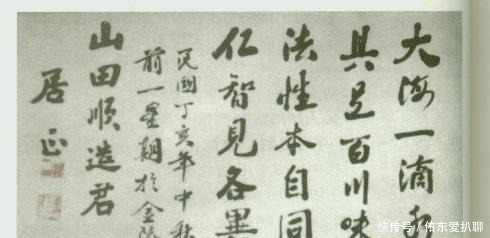 大海一滴
具足百川味
法性本自同
仁智見各異
民國丁亥年中秋
前一星期於金陵
山田順造君
居正
快传号／侑东爱扒聊